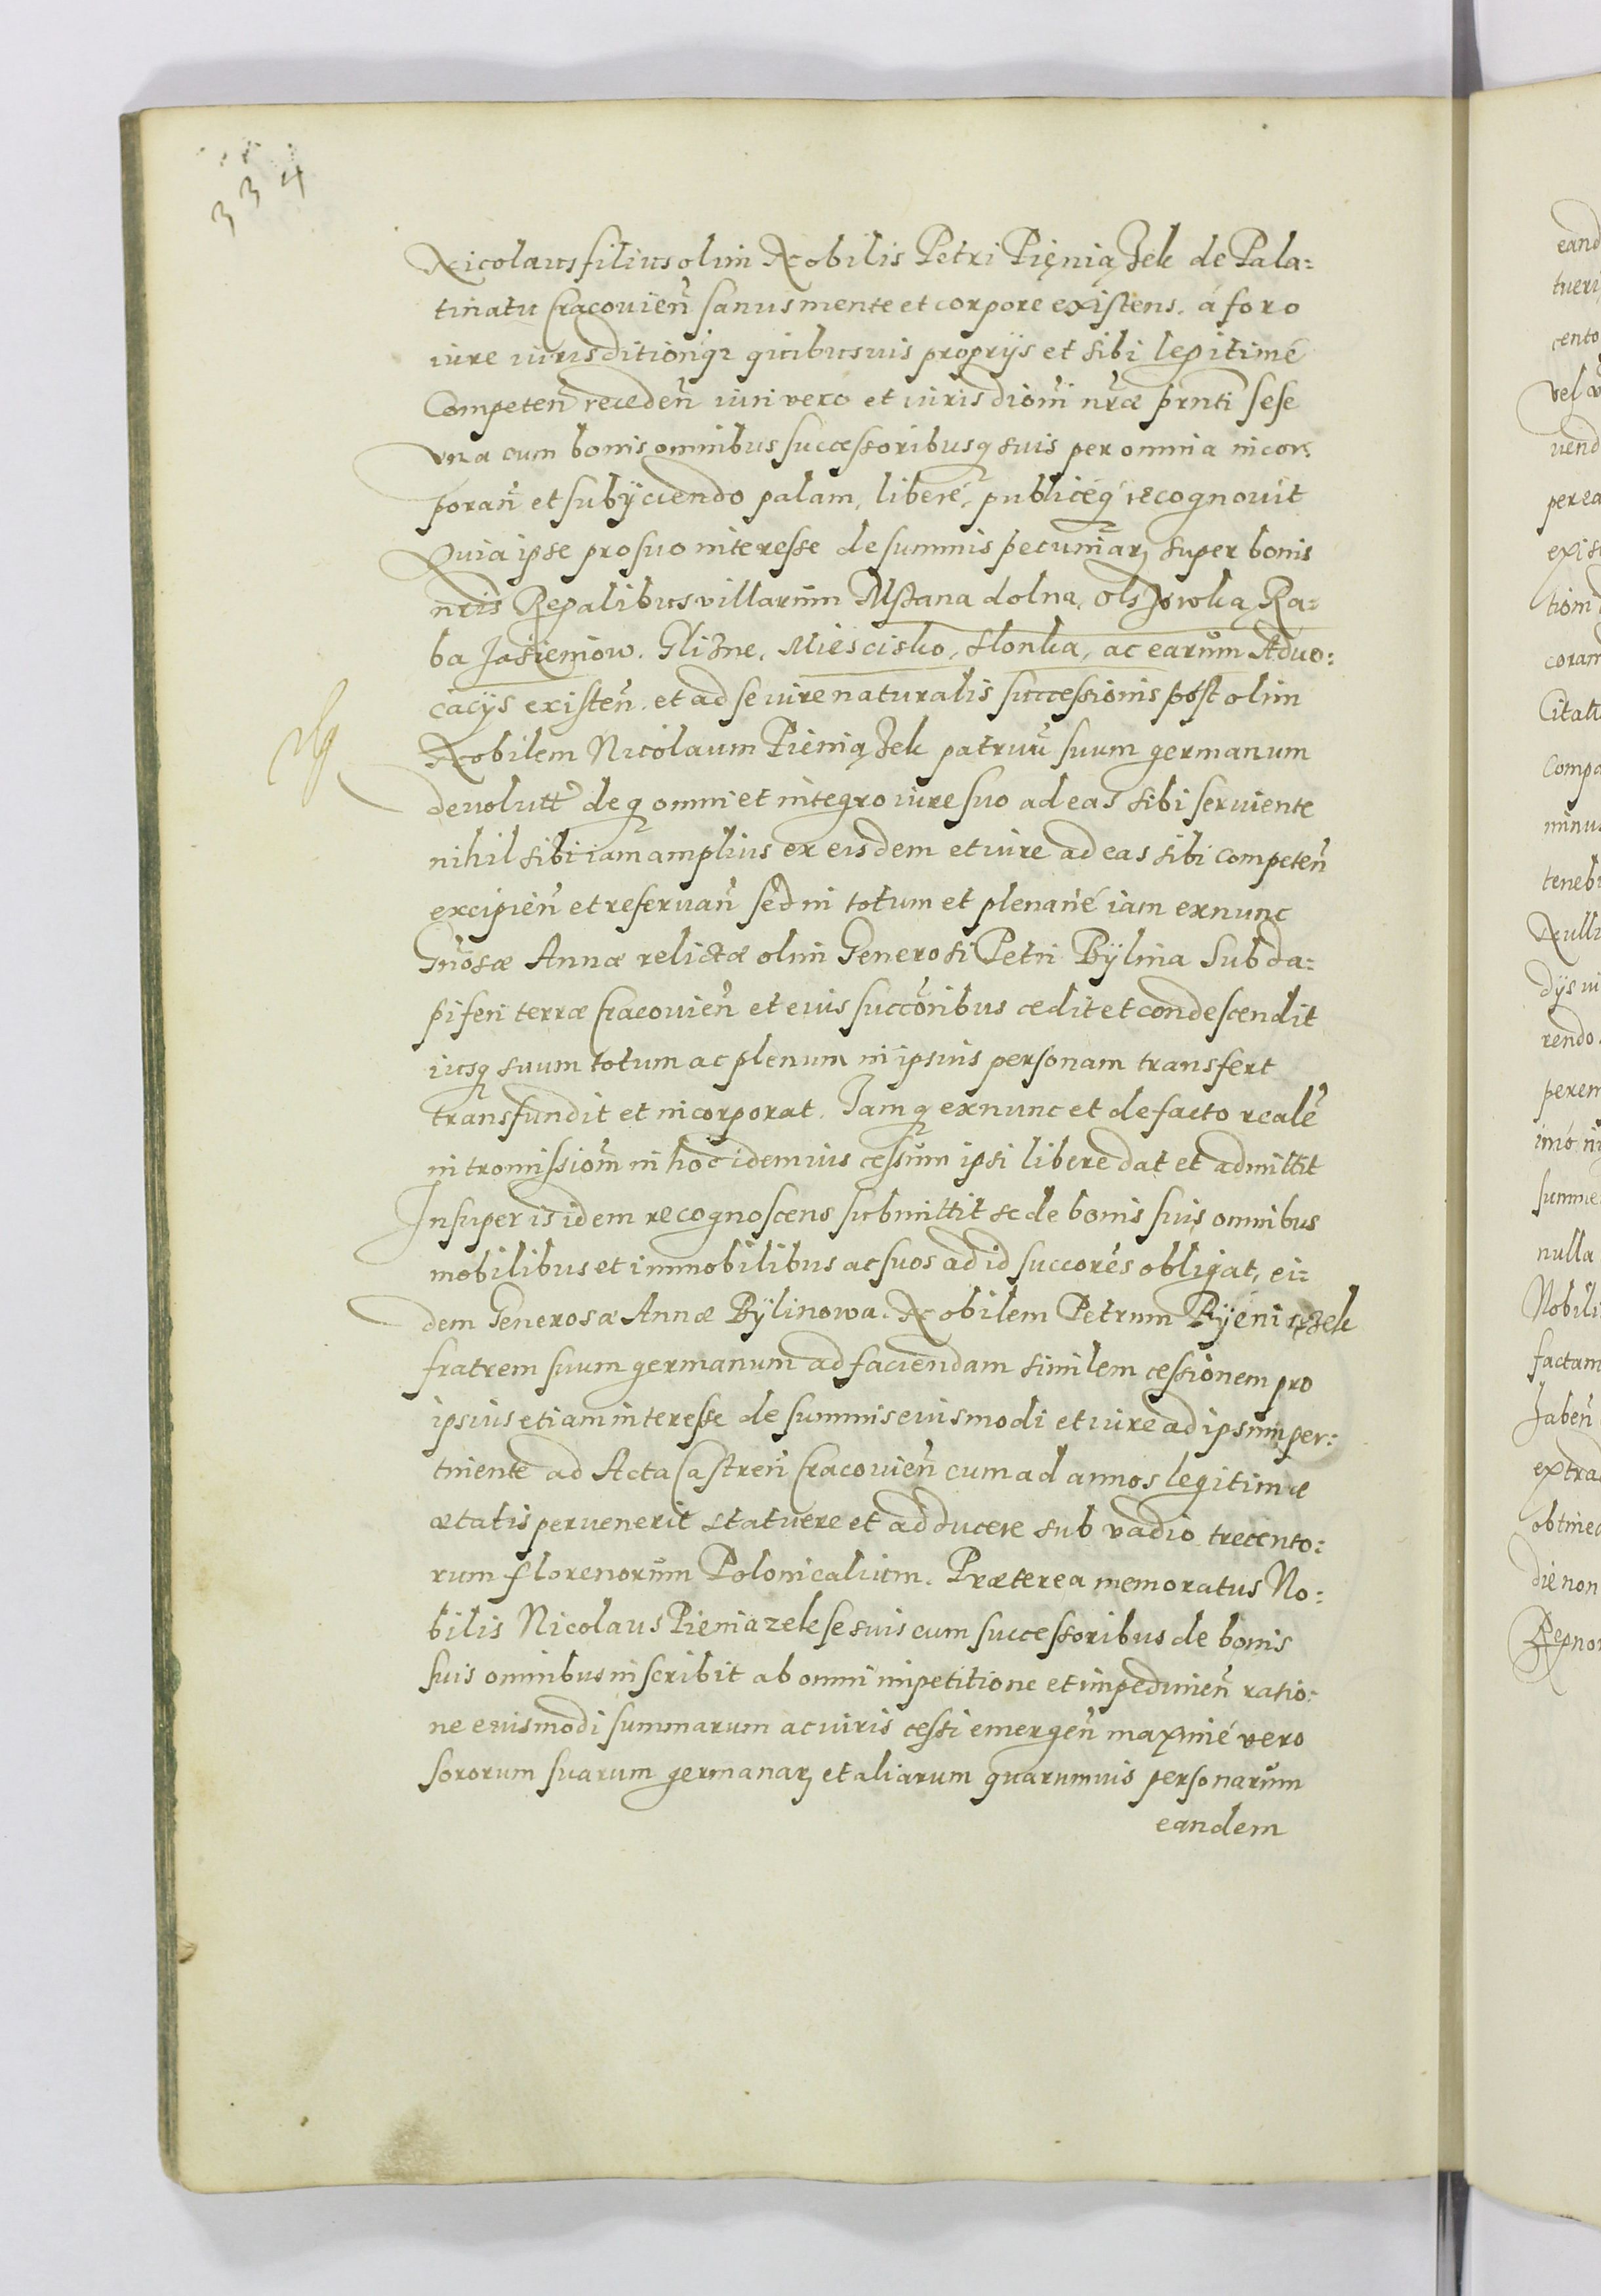 334
Nicolaus filius olim Nobilis Petri Pięniążek de Pala=
tinatu Cracovien̄ sanus mente et corpore existens. á foro
iure iurisditioniq₃ quibusuis proprÿs et sibi legitimé
Competen̄ receden̄ iuri vero et iurisdiōni nr̄æ prn̄ti sese
vna cum bonis omnibus successoribusq₃ suis per omnia incor=
poran̄ et subÿciendo palam, liberé, publicéq₃ recognouit
Quia ipse pro suo interesse de summis pecuniar₃ super bonis
nr̄is Regalibus villarum Mstana dolna, Olszowka, Ra=
ba Jasieniow. Glizne, Miescisko, Slonka, ac earum Aduo=
cacÿs existen̄. et ad se iure naturalis successionis post olim
Nobilem Nicolaum Pieniążek patruū suum germanum
devolut̄ deq₃ omni et integro iure suo ad eas sibi seruiente
nihil sibi iam amplius ex eisdem et iure ad eas sibi competen̄
excipien̄ et reseruan̄ sed in totum et plenarié iam exnunc
Gn̄osæ Annæ relictæ olim Generosi Petri Bÿlina Subda=
piferi terræ Cracovien̄ et eius succōribus cedit et condescendit
iusq₃ suum totum ac plenum in ipsius personam transfert
transfundit et incorporat. Iamq₃ exnunc et de facto realē
intromissiōm in hoc idem ius cessum ipsi libere dat et admittit
Insuper is idem recognoscens submittit se de bonis suis omnibus
mobilibus et immobilibus ac suos ad id succōres obligat, ei=
dem Generosæ Annæ Bÿlinowa. Nobilem Petrum Pÿeniążek
fratrem suum germanum ad faciendam similem cessionem pro
ipsius etiam interesse de summis eiusmodi et iure ad ipsum per=
tinente ad Acta Castren̄ Cracovien̄ cum ad annos legitimæ
ætatis peruenerit statuere et adducere sub vadio trecento=
rum florenorum Polonicalium. Præterea memoratus No=
bilis Nicolaus Pieniazek se suis cum successoribus de bonis
suis omnibus inscribit ab omni impetitione et impedimen̄ ratio=
ne eiusmodi summarum ac iuris cessi emergen̄ maximé vero
sororum suarum germanar₃ et aliarum quarumuis personarum
eandem
eand
tueri
cento
vel
vend
per ea
exis
tiom
coram
Citati
compa
minus
tenebi
Nulli
dÿs
rendo
perem
imó
summe
nulla
Nobili
factam
Jaben̄
extra
obtine
die non
Regno